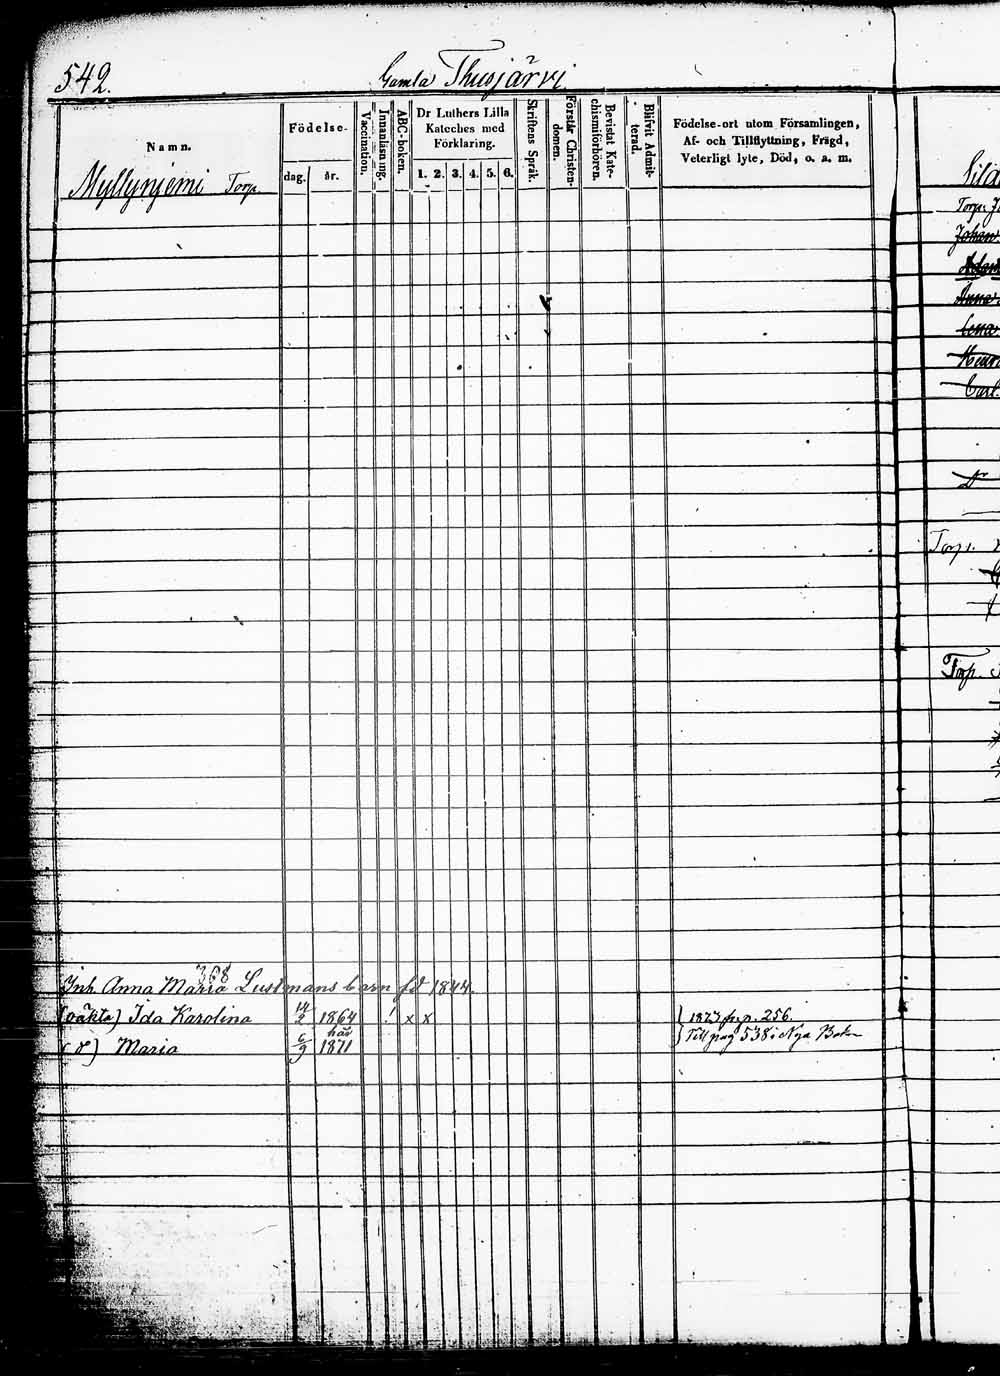 542.
Gamla Thusjärvi.
Namn.
Födelse-
dag. år.
Vaccination.
Innanläsning.
ABC-boken.
Dr Luthers Lilla
Kateches med
Förklaring.
1. 2. 3. 4. 5. 6.
Skriftens Språk.
Förstår Christen-
domen.
Bevistat Kate-
chismiförhören.
Blifvit Admit-
terad.
Födelse-ort utom Församlingen,
Af- och Tillflyttning, Frägd,
Veterligt lyte, Död, o. a. m.
Myllynjemi Torp.
368
Inh. Anna Maria Lustmans barn fd 1844.
(oäkta) Ida Karolina 14/2 1864 ! x x } 1873 fr. p. 256.
här } Till pag 538 i Nya Boken
(d) Maria 6/9 1871
Torp. J
Johan
Adam
Anna
Lena
Henr
Carl
Torp.
Torp.